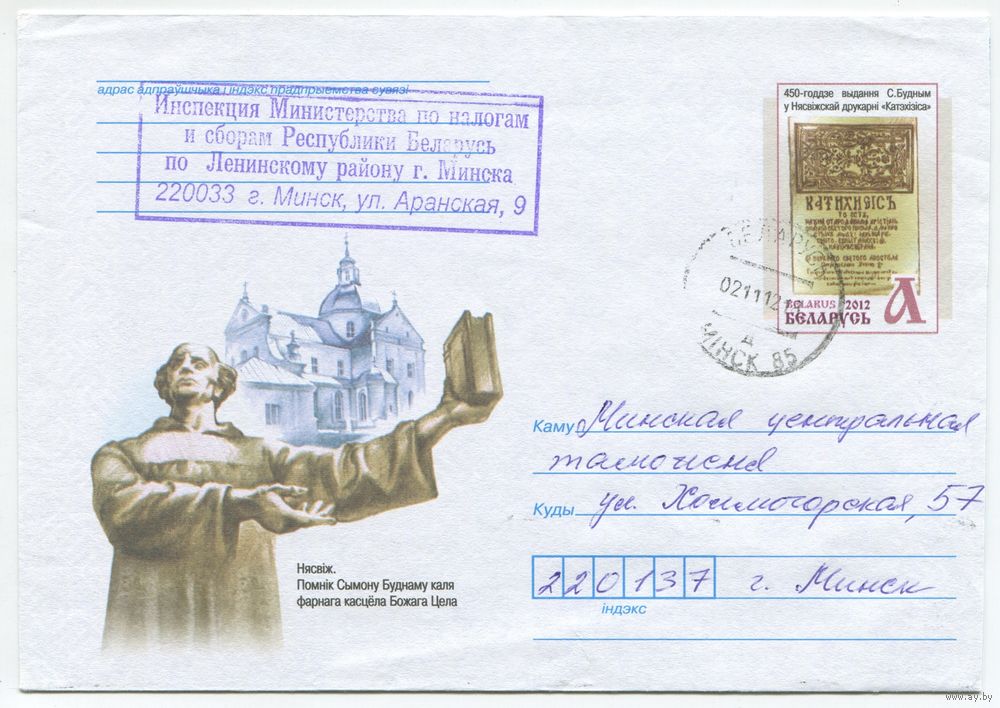 адрас адпраўшчыка і індэкс прадпрыемства сувязі
Инспекция Министерства по налогам
и сборам Республики Беларусь
по Ленинскому району г. Минска
220033 г. Минск, ул. Аранская, 9
450-годдзе выдання С.Будным
у Нясвіжскай друкарні «Катэхізіса»
КАТИХИСІСЪ
ТО ЕСТЬ
BELARUS 2012
БЕЛАРУСЬ
А
БЕЛАРУСЬ
021112
Д
МІНСК 85
Каму Минская центральная
таможня
Куды ул. Холмогорская, 57
220137 г. Минск
індэкс
Нясвіж.
Помнік Сымону Буднаму каля
фарнага касцёла Божага Цела
www.ay.by